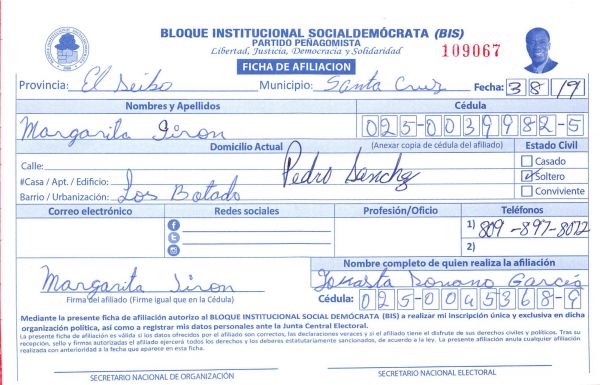 BLOQUE INSTITUCIONAL SOCIALDEMÓCRATA (BIS)
PARTIDO PEÑAGOMISTA
Libertad, Justicia, Democracia y Solidaridad
109067
FICHA DE AFILIACION
Provincia: El Seibo Municipio: Santa Cruz Fecha: 3 8 19
Nombres y Apellidos Cédula
Margarita Jiron 025-0039982-5
Domicilio Actual (Anexar copia de cédula del afiliado) Estado Civil
Calle: Pedro Sanchez Casado
#Casa / Apt. / Edificio: Soltero
Barrio / Urbanización: Los Botado Conviviente
Correo electrónico Redes sociales Profesión/Oficio Teléfonos
1) 809-897-8022
2)
Nombre completo de quien realiza la afiliación
Margarita Jiron Soriano García
Firma del afiliado (Firme igual que en la Cédula) Cédula: 025-0045368-9
Mediante la presente ficha de afiliación autorizo al BLOQUE INSTITUCIONAL SOCIAL DEMÓCRATA (BIS) a realizar mi inscripción única y exclusiva en dicha
organización política, así como a registrar mis datos personales ante la Junta Central Electoral.
La presente ficha de afiliación es válida si los datos ofrecidos por el afiliado son correctos, las declaraciones veraces y si el afiliado tiene el disfrute de sus derechos civiles y políticos. Tras su
recepción, sello y firmas autorizadas el afiliado ejercerá todos los derechos y los deberes estatutariamente sancionados, de acuerdo a la ley. La presente afiliación anula cualquier afiliación
realizada con anterioridad a la fecha que aparece en esta ficha.
SECRETARIO NACIONAL DE ORGANIZACIÓN SECRETARIO NACIONAL ELECTORAL